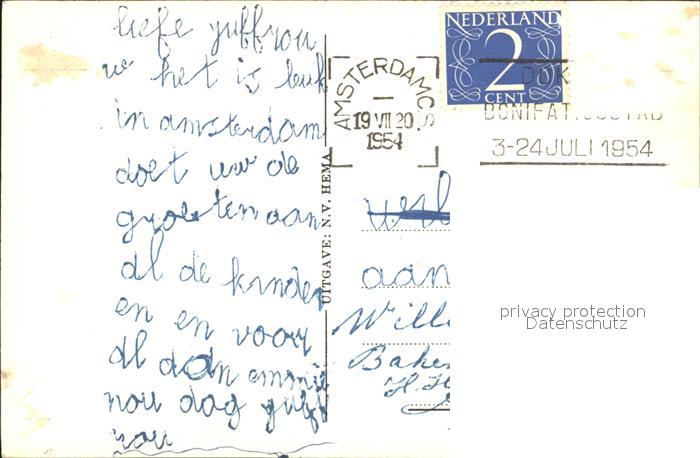 liefe juffrou
w het is leuk
in amsterdam
doet uw de
groeten aan
al de kinder
en en voor
al aan emmie
nou dag juff
rou
UITGAVE: N.V. HEMA
AMSTERDAM C.S.
19 VII 20.
1954
NEDERLAND
2
CENT
DOK
BONIFATIUSSTAD
3-24 JULI 1954
aan
Will
Bake
H.H
privacy protection
Datenschutz